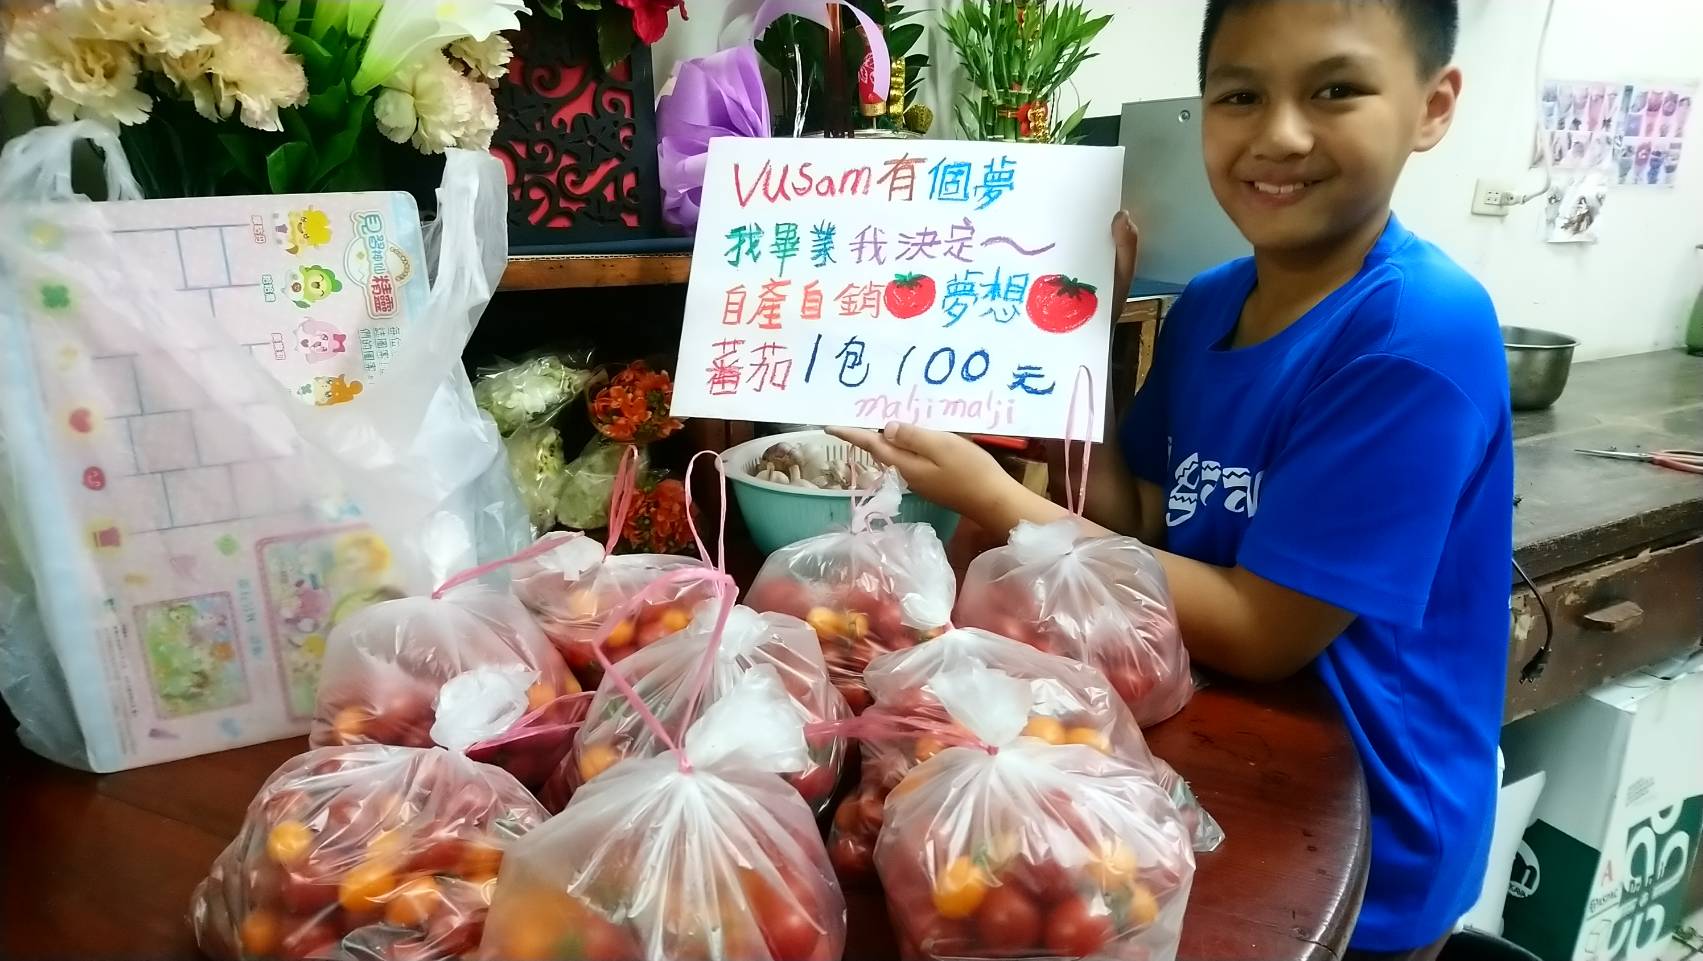 VUSam有個夢
我畢業我決定～
自產自銷夢想
蕃茄1包100元
maljimalji